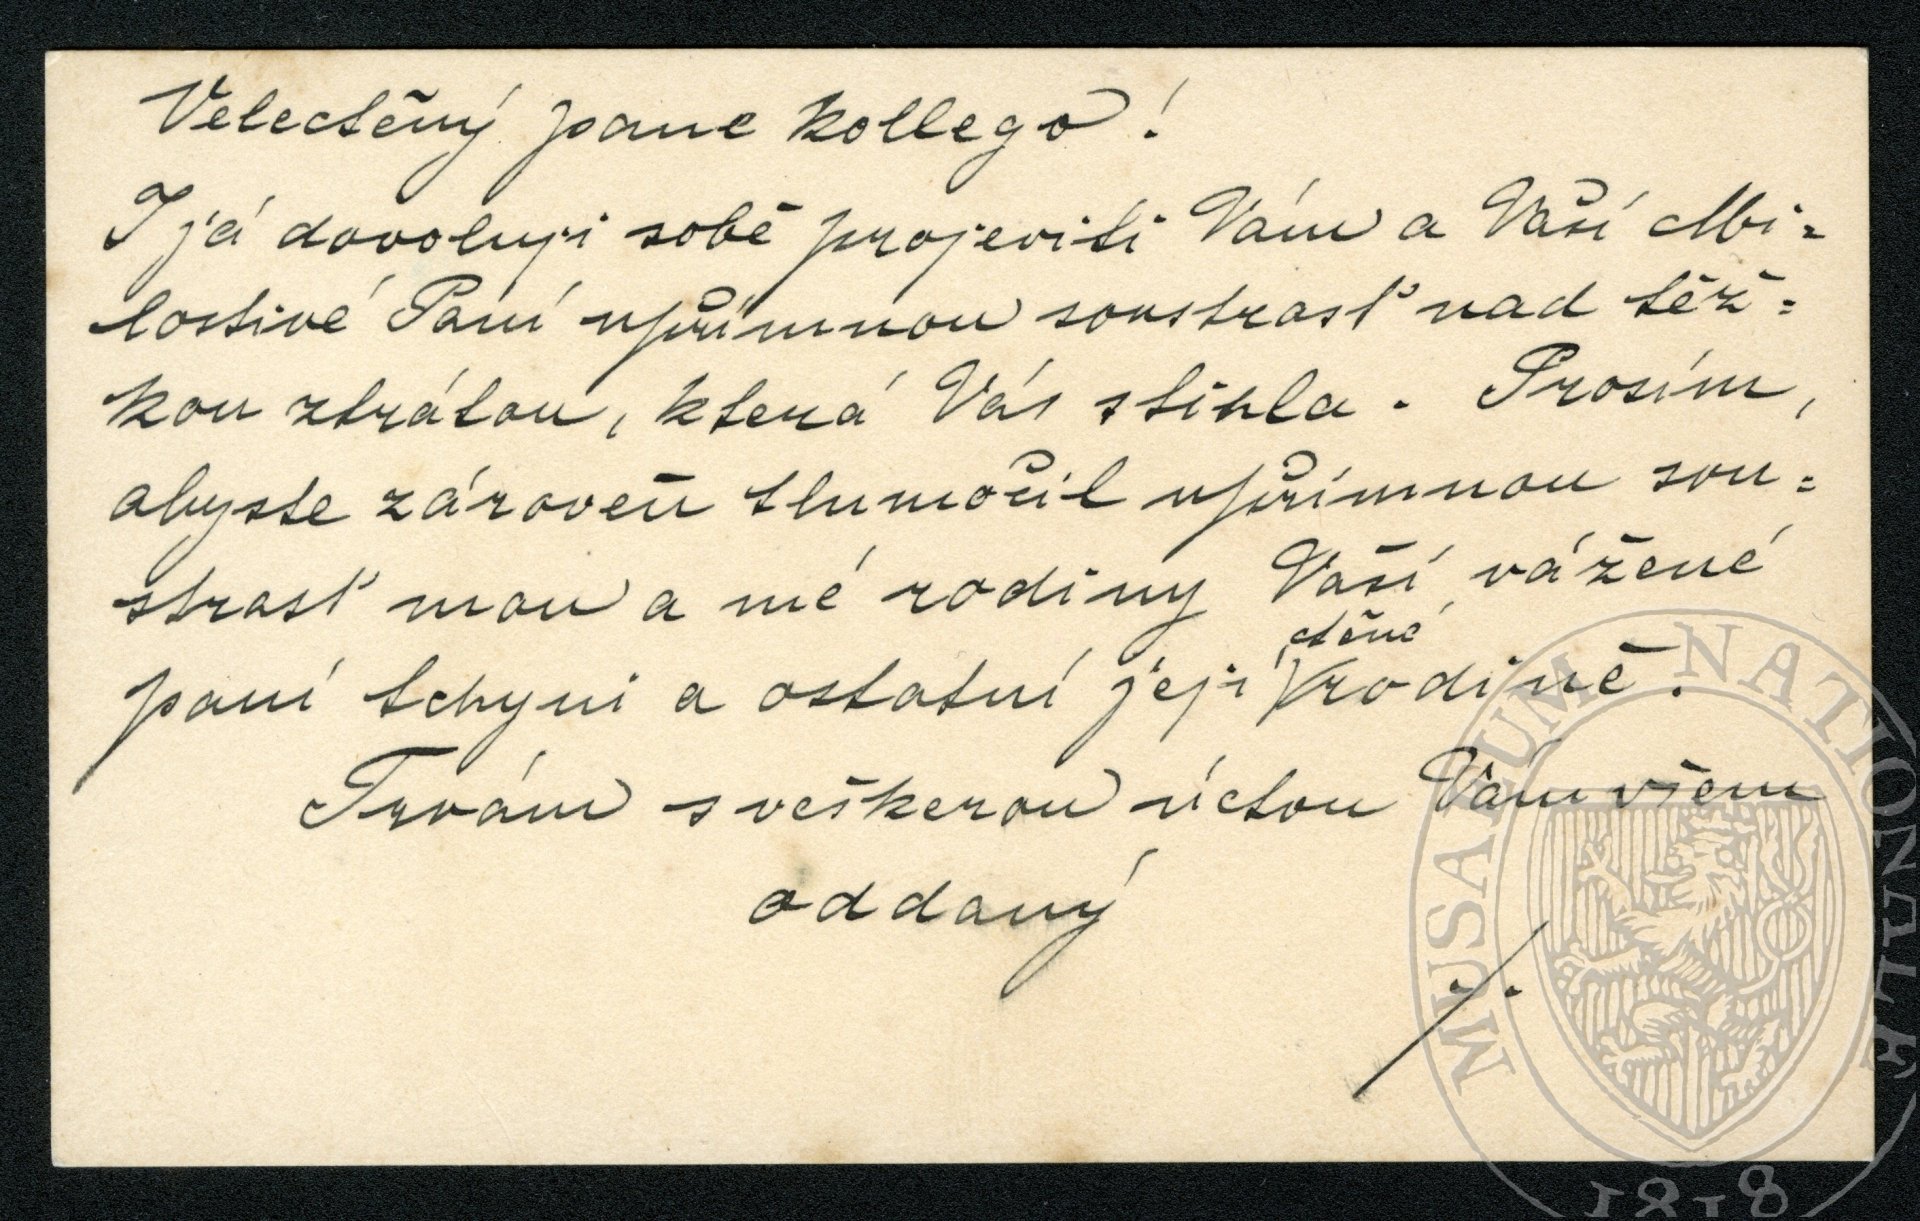 Velectěný pane kollego!
I já dovoluji sobě projeviti Vám a Vaší Mi=
lostivé Paní upřímnou soustrasť nad těž=
kou ztrátou, která Vás stihla. Prosím,
abyste zároveň tlumočil upřímnou sou=
strasť mou a mé rodiny Vaší vážené
ctěné
paní tchyni a ostatní její rodině.
Trvám s veškerou úctou Vám všem
oddaný
MUSAEUM NATIONALE
1818